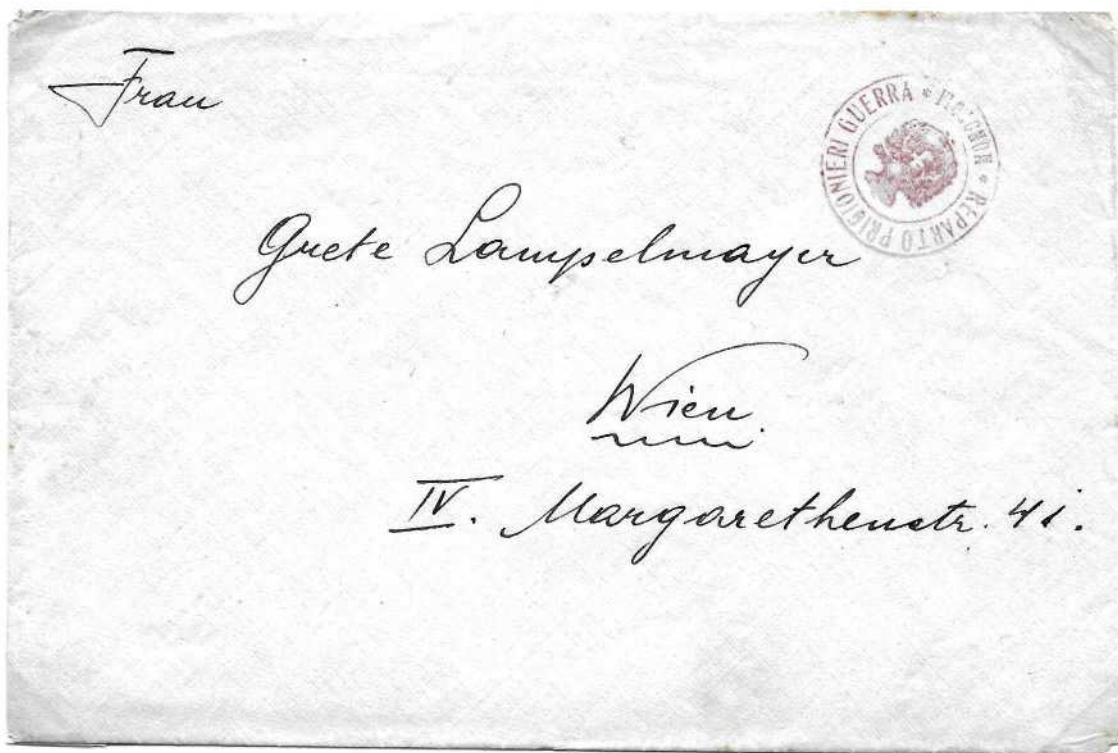 Frau
REPARTO PRIGIONIERI GUERRA
Grete Lampelmayer
Wien
IV. Margarethenstr. 41.